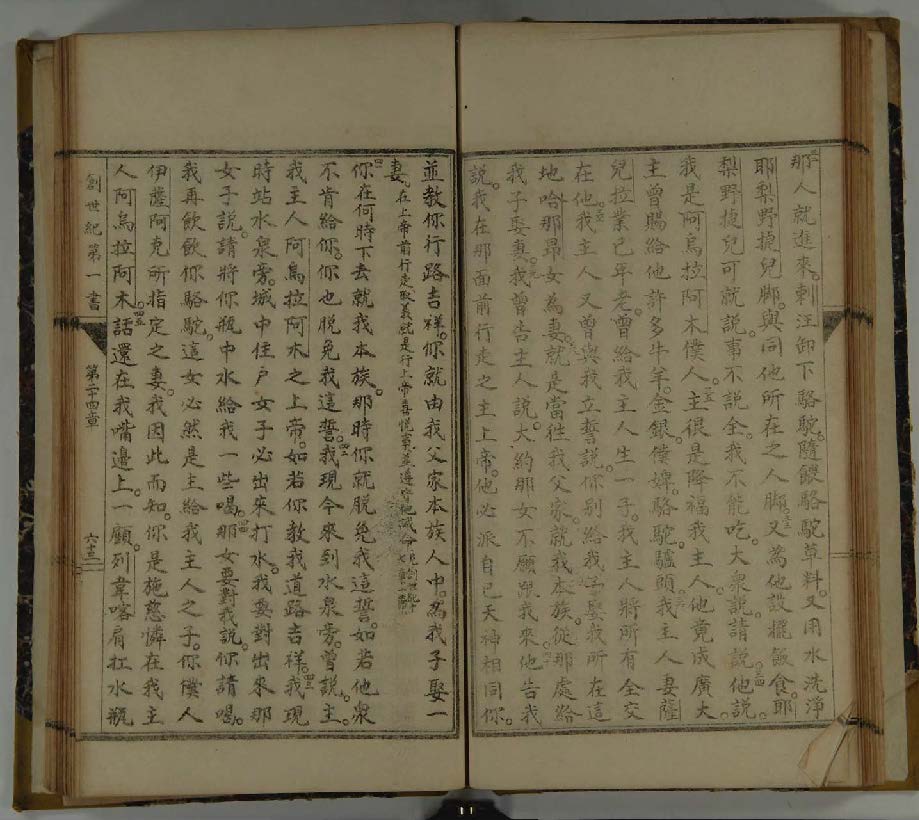 那人就進來。剌汪卸下駱駝。隨餵駱駝草料。又用水洗淨
耶梨野捷兒脚。與同他所在之人脚。又為他設擺飯食。耶
梨野捷兒可就說。事不說全。我不能吃。大衆說。請說。他說。
我是阿烏拉阿木僕人。主很是降福我主人。他竟成廣大。
主曾賜給他許多牛羊。金銀。僕婢。駱駝。驢頭。我主人妻薩
兒拉業已年老。曾給我主人生一子。我主人將所有全交
在他。我主人又曾與我立誓說。你別給我子娶我所在這
地哈那昂女為妻。就是當往我父家。就我本族。從那處給
我子娶妻。我曾告主人說。大約那女不願跟我來。他告我
說。我在那面前行走之主上帝。他必派自己天神相同你。
並教你行路吉祥。你就由我父家本族人中。為我子娶一
妻。在上帝前行走取義就是行上帝喜悅事並遵守他誡命
你在何時下去就我本族。那時你就脫免我這誓。如若他衆
不肯給你。你也脫免我這誓。我現今來到水泉旁。曾說。主。
我主人阿烏拉阿木之上帝。如若你教我道路吉祥。我現
時站水泉旁。城中住戶女子必出來打水。我要對出來那
女子說。請將你瓶中水給我一些喝。那女要對我說。你請喝。
我再飲飲你駱駝。這女必然是主給我主人之子。你僕人
伊薩阿克所指定之妻。我因此而知。你是施慈憐在我主
人阿烏拉阿木。話還在我嘴邊上。一顧。列韋喀肩扛水瓶
創世紀第一書
第二十四章
六十三